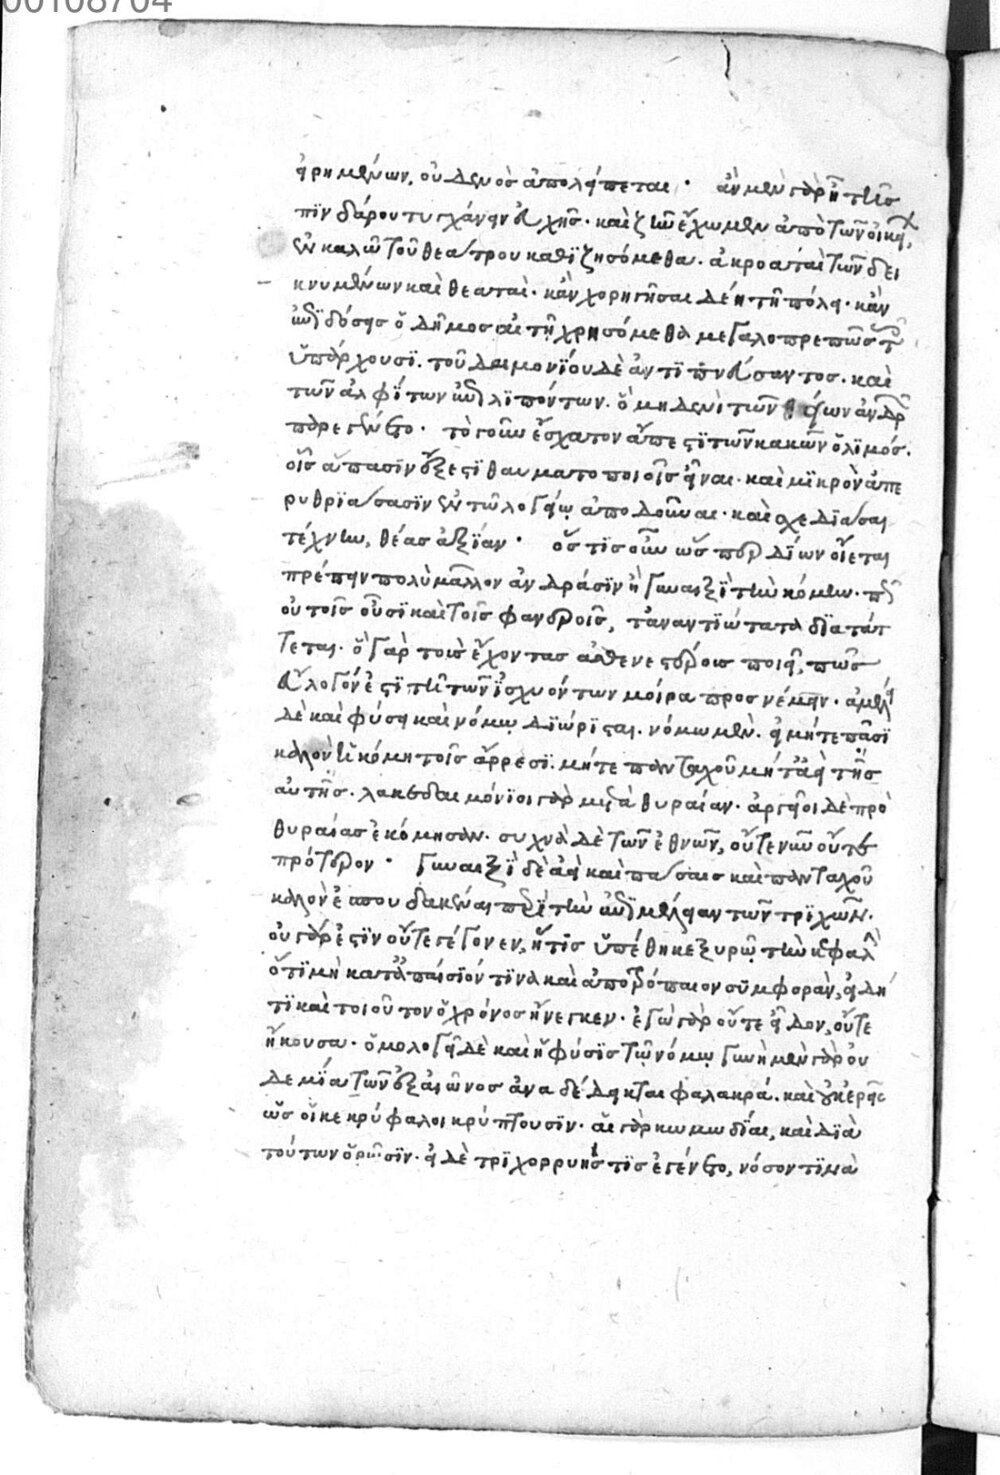 00108704
εἰρημένων, οὐδενὸς ἀπολείπεται· ἂν μὲν γὰρ ᾖ τῆς
Πινδάρου τυγχάνειν εὐχῆς· καὶ ζῆν ἔχωμεν ἀπὸ τῶν οἰκεί
ἐν καλῶ τοῦ θεάτρου καθϊζησόμεθα· ἀκροαταὶ τῶν δει
κνυμένων καὶ θεαταὶ· κἂν χορηγῆσαι δέῃ τῇ πόλει· κἂν
ὁ δῆμος αἰτῇ χρησόμεθα μεγαλοπρεπῶς τοῖς
ὑπάρχουσϊ· τοῦ δαιμονίου δὲ ἀντιπνεύσαντος· καὶ
τῶν ἀλφίτων ἐπιλιπόντων· ὃ μηδενὶ τῶν ἀνδρ
παραγένοιτο· τὸ γοῦν ἔσχατον ἅπεστϊ τῶν κακῶν ὁ λϊμός·
οἷς ἅπασϊν ἔξεστϊ θαυματοποιοῖς εἶναι· καὶ μικρὸν ἀπε
ρυθριάσασϊν ἐν τῶ λογείῳ ἀποδοῦναι· καὶ σχεδιάσαι
τέχνην, θέας ἀξίαν· ὅστις οὖν ὡς περ Δίων οἴεται
πρέπειν πολὺ μᾶλλον ἀνδράσϊν ἢ γυναιξὶ τὴν κόμην·
οὑτοισ οὖσϊ καὶ τοῖς φανεροῖς, τἀναντιώτατα διατάτ
τεται· ὃ γὰρ τοὺς ἔχοντας ἀσθενεστέρους ποιεῖ, πῶς
εὔλογόν ἐστι τῇ τῶν ἰσχυόντων μοίρα προσνέμειν· ἀμέλει
δὲ καὶ φύσει καὶ νόμῳ διώρισται· νόμω μὲν· εἰ μήτε πᾶσϊ
καλὸν ἡ κόμη τοῖς ἄρρεσϊ· μήτε πανταχοῦ μήτ' ἀεὶ τῆς
αὐτῆς· λακεδαιμόνιοι γὰρ μετὰ θυραίαν· ἀργεῖοι δὲ πρὸ
θυραίας ἐκόμησαν· συχνὰ δὲ τῶν ἐθνῶν, οὔτε νῦν οὔτε
πρότερον· γυναιξὶ δὲ ἀεὶ καὶ πάσαις καὶ πανταχοῦ
καλὸν ἐσπουδακέναι περὶ τὴν ἐπιμέλειαν τῶν τριχῶν·
οὐ γάρ ἐστϊν οὔτε γέγονεν, ἥτις ὑπέθηκε ξυρῶ τὴν κεφαλὴν
ὅτι μὴ κατ' ἀπαίσϊόν τινα καὶ ἀποτρόπαιον σύμφορὰν, εἰ δή
τι καὶ τοιοῦτον ὁ χρόνος ἤνεγκεν· ἐγὼ γὰρ οὔτε εἶδον, οὔτε
ἤκουσα· ὁμολογεῖ δὲ καὶ ἡ φύσις τῶ νόμῳ γυνὴ μὲν γὰρ οὐ
δεμία τῶν ἐξ αἰῶνος ἀναδέδεικται φαλακρά· καὶ
ὡς οἱ κεκρύφαλοι κρύπτουσϊν· αἱ γὰρ κωμωδίαι, καὶ διὰ
τούτων ὁρῶσϊν· εἰ δὲ τριχορρυής τις ἐγένετο, νόσον τινὰ